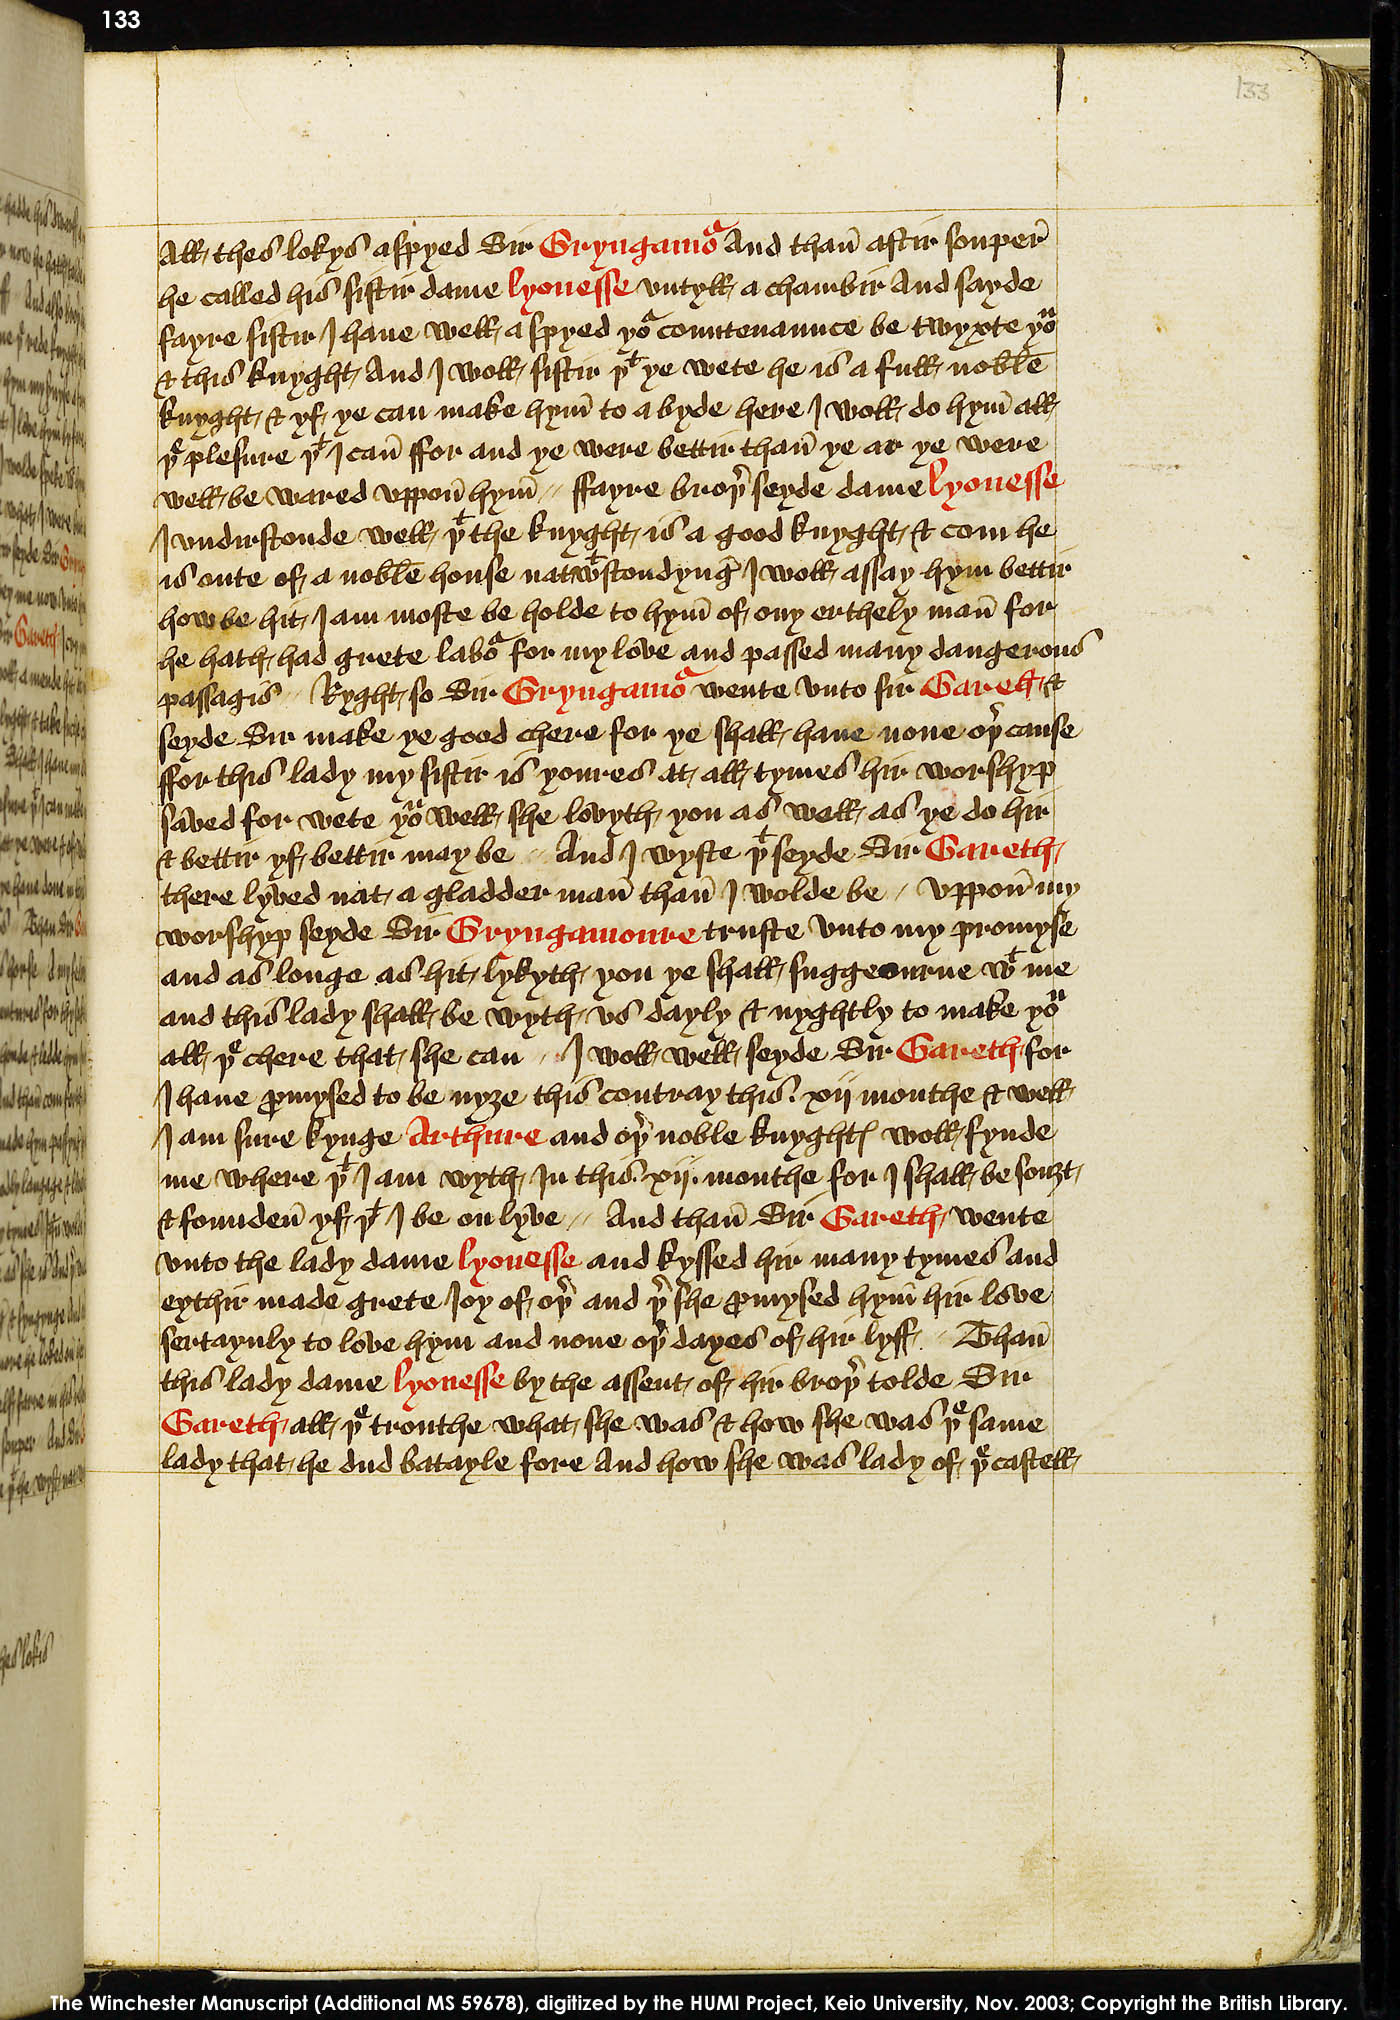 133
133
All thes lokys aspyed Sir Gryngamoʳ And than̄ aftir souper
he called his sistir dame lyonesse vntyll a chambir And sayde
fayre sistir I haue well a spyed yoʳ countenaunce be twyxte yoᵘ
& this knyght And I woll sistir þᵗ ye wete he is a full noble
knyght & yf ye can make hym̄ to a byde here I woll do hym̄ all
þᵉ plesure þᵗ I can̄ ffor and ye were bettir than̄ ye ar ye were
well be wared vppon̄ hym̄ // ffayre broþʳ seyde dame lyonesse
I vndirstonde well þᵗ the knyght is a good knyght & com he
is oute of a noble house natwᵗstondyng I woll assay hym bettir
how be hit I am moste be holde to hym̄ of ony erthely man̄ for
he hath had grete laboʳ for my love and passed many dangerous
passagis // Ryght so Sir Gryngamoʳ wente vnto sir Gareth &
seyde Sir make ye good chere for ye shall haue none oþʳ cause
ffor this lady my sistir is youres at all tymes hir worshyp
saved for wete yoᵘ well she lovyth you as well as ye do hir
& bettir yf bettir may be // And I wyste þᵗ seyde Sir Gareth
there lyved nat a gladder man̄ than̄ I wolde be // Vppon̄ my
worshyp seyde Sir Gryngamoure truste vnto my promyse
and as longe as hit lykyth you ye shall suggeourne wᵗ me
and this lady shall be wyth vs dayly & nyghtly to make yoᵘ
all þᵉ chere that she can // I woll well seyde Sir Gareth for
I haue ꝓmysed to be nyȝe this contray this .xij monthe & well
I am sure kynge Arthure and oþʳ noble knyghtꝭ woll fynde
me where þᵗ I am wyth In this .xij. monthe for I shall be souȝt
& founden̄ yf þᵗ I be on lyve // And than̄ Sir Gareth wente
vnto the lady dame lyonesse and kyssed hir many tymes and
eythir made grete Ioy of oþʳ and þʳ she ꝓmysed hym̄ hir love
sertaynly to love hym and none oþʳ dayes of hir lyff // Than̄
this lady dame lyonesse by the assent of hir broþʳ tolde Sir
Gareth all þᵉ trouthe what she was & how she was þᵉ same
lady that he dud batayle fore And how she was lady of þᵉ castell
The Winchester Manuscript (Additional MS 59678), digitized by the HUMI Project, Keio University, Nov. 2003; Copyright the British Library.